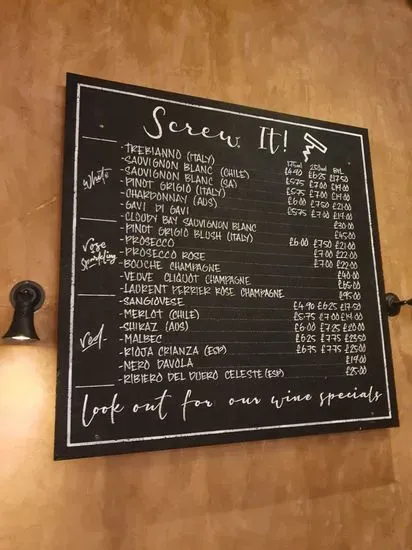 Screw It!
175ml 250ml BTL
White
-TREBIANNO (ITALY) £4.90 £6.25 £17.50
-SAUVIGNON BLANC (CHILE) £5.75 £7.00 £19.00
-SAUVIGNON BLANC (SA)
-PINOT GRIGIO (ITALY) £5.75 £7.00 £19.00
-CHARDONNAY (AUS) £6.00 £7.50 £21.00
-GAVI DI GAVI
-CLOUDY BAY SAUVIGNON BLANC
Rose Sparkling
-PINOT GRIGIO BLUSH (ITALY)
-PROSECCO
-PROSECCO ROSE
-BOUCHE CHAMPAGNE
-VEUVE CLIQUOT CHAMPAGNE
-LAURENT PERRIER ROSE CHAMPAGNE £95.00
red
-SANGIOVESE £4.90 £6.25 £17.50
-MERLOT (CHILE) £5.75 £7.00 £19.00
-SHIRAZ (AUS) £6.00 £7.25 £20.00
-MALBEC £6.25 £7.75 £23.50
-RIOJA CRIANZA (ESP) £6.75 £7.75 £25.00
-NERO DAVOLA £19.00
-RIBIERO DEL DUERO CELESTE (ESP) £25.00
look out for our wine specials